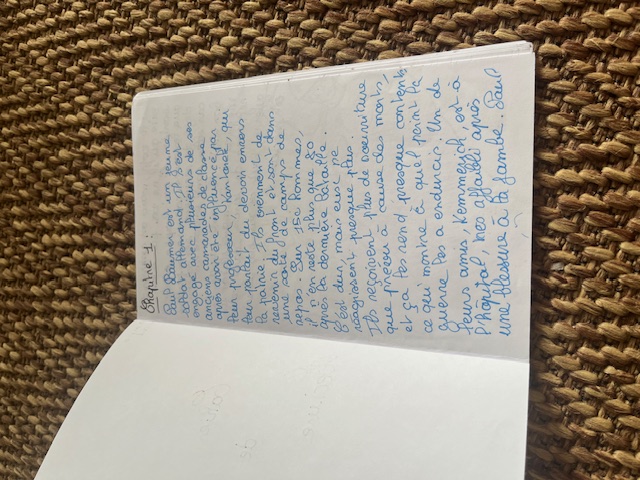 Chapitre 1 :
Paul Baümer est un jeune
soldat allemand. Il s'est
engagé avec plusieurs de ses
anciens camarades de classe
après avoir été influencé par
leur professeur, Kantorek, qui
leur parlait du devoir envers
la patrie. Ils viennent de
revenir du front et sont dans
une sorte de camps de
repos. Sur 150 hommes,
il n'en reste plus que 80
après la dernière bataille.
C'est dur, mais eux ne
réagissent presque plus.
Ils reçoivent plus de nourriture
que prévu à cause des morts,
et ça les rend presque contents
ce qui montre à quel point la
guerre les a endurcis. Un de
leurs amis, Kemmerich, est à
l'hôpital, très affaibli après
une blessure à la jambe. Paul